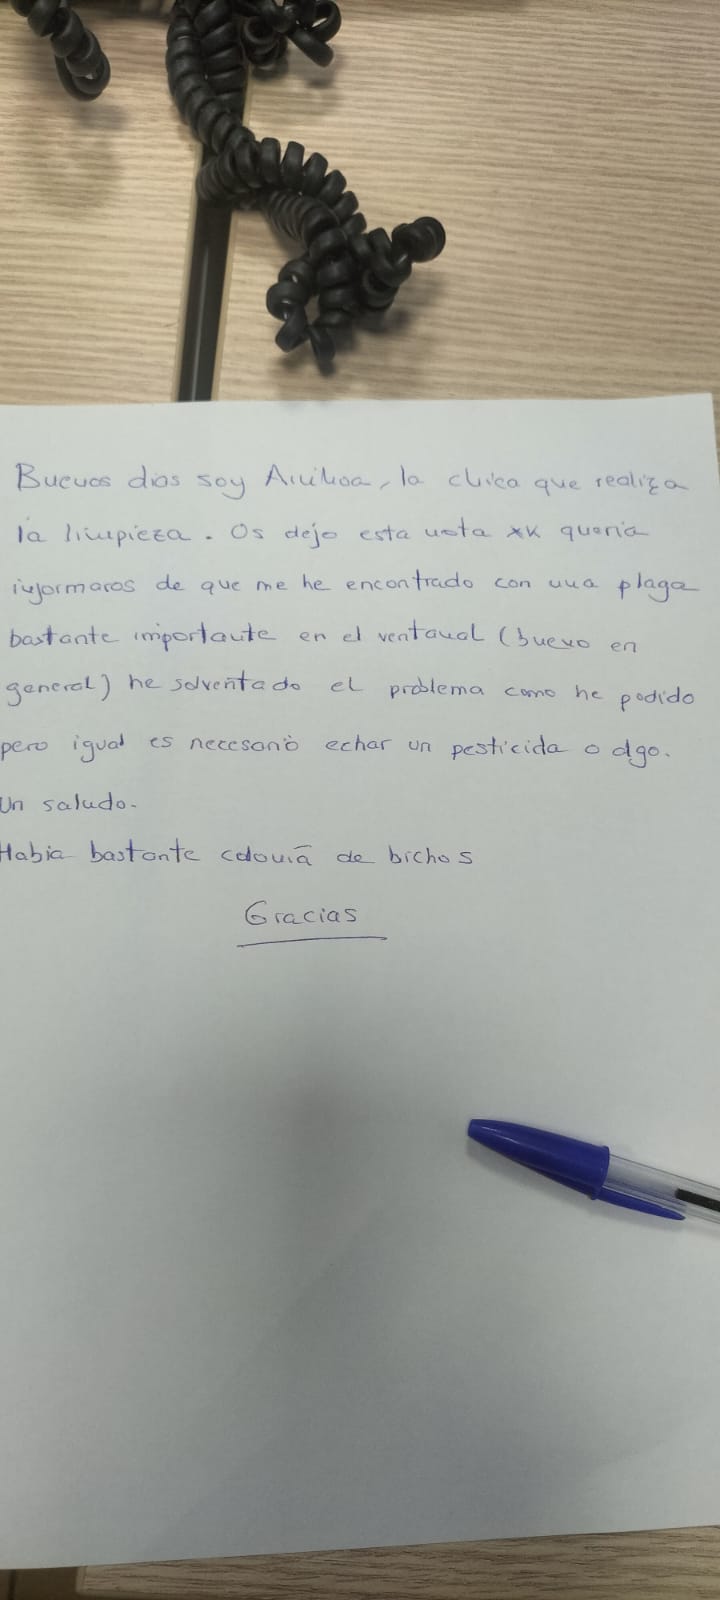 Buenos dias soy Ainhoa, la chica que realiza
la limpieza. Os dejo esta nota xk queria
informaros de que me he encontrado con una plaga
bastante importante en el ventanal (bueno en
general) he solventado el problema como he podido
pero igual es necesario echar un pesticida o algo.
Un saludo.
Habia bastante colonia de bichos
Gracias